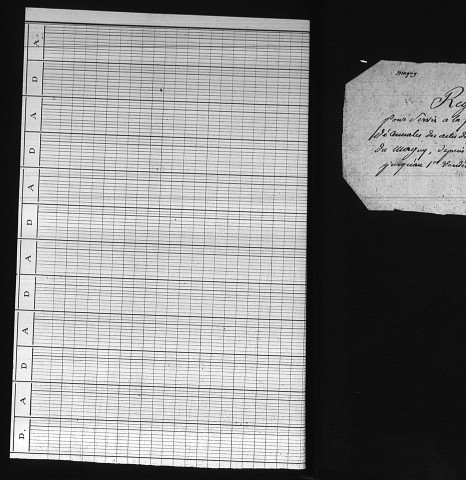 A.
D
A
D
A
D
A
D
A
D
A
D.
Magny
Reg
pour servir a la
décennales des actes de
du Magny, depuis
jusqu'au 1er Vendé